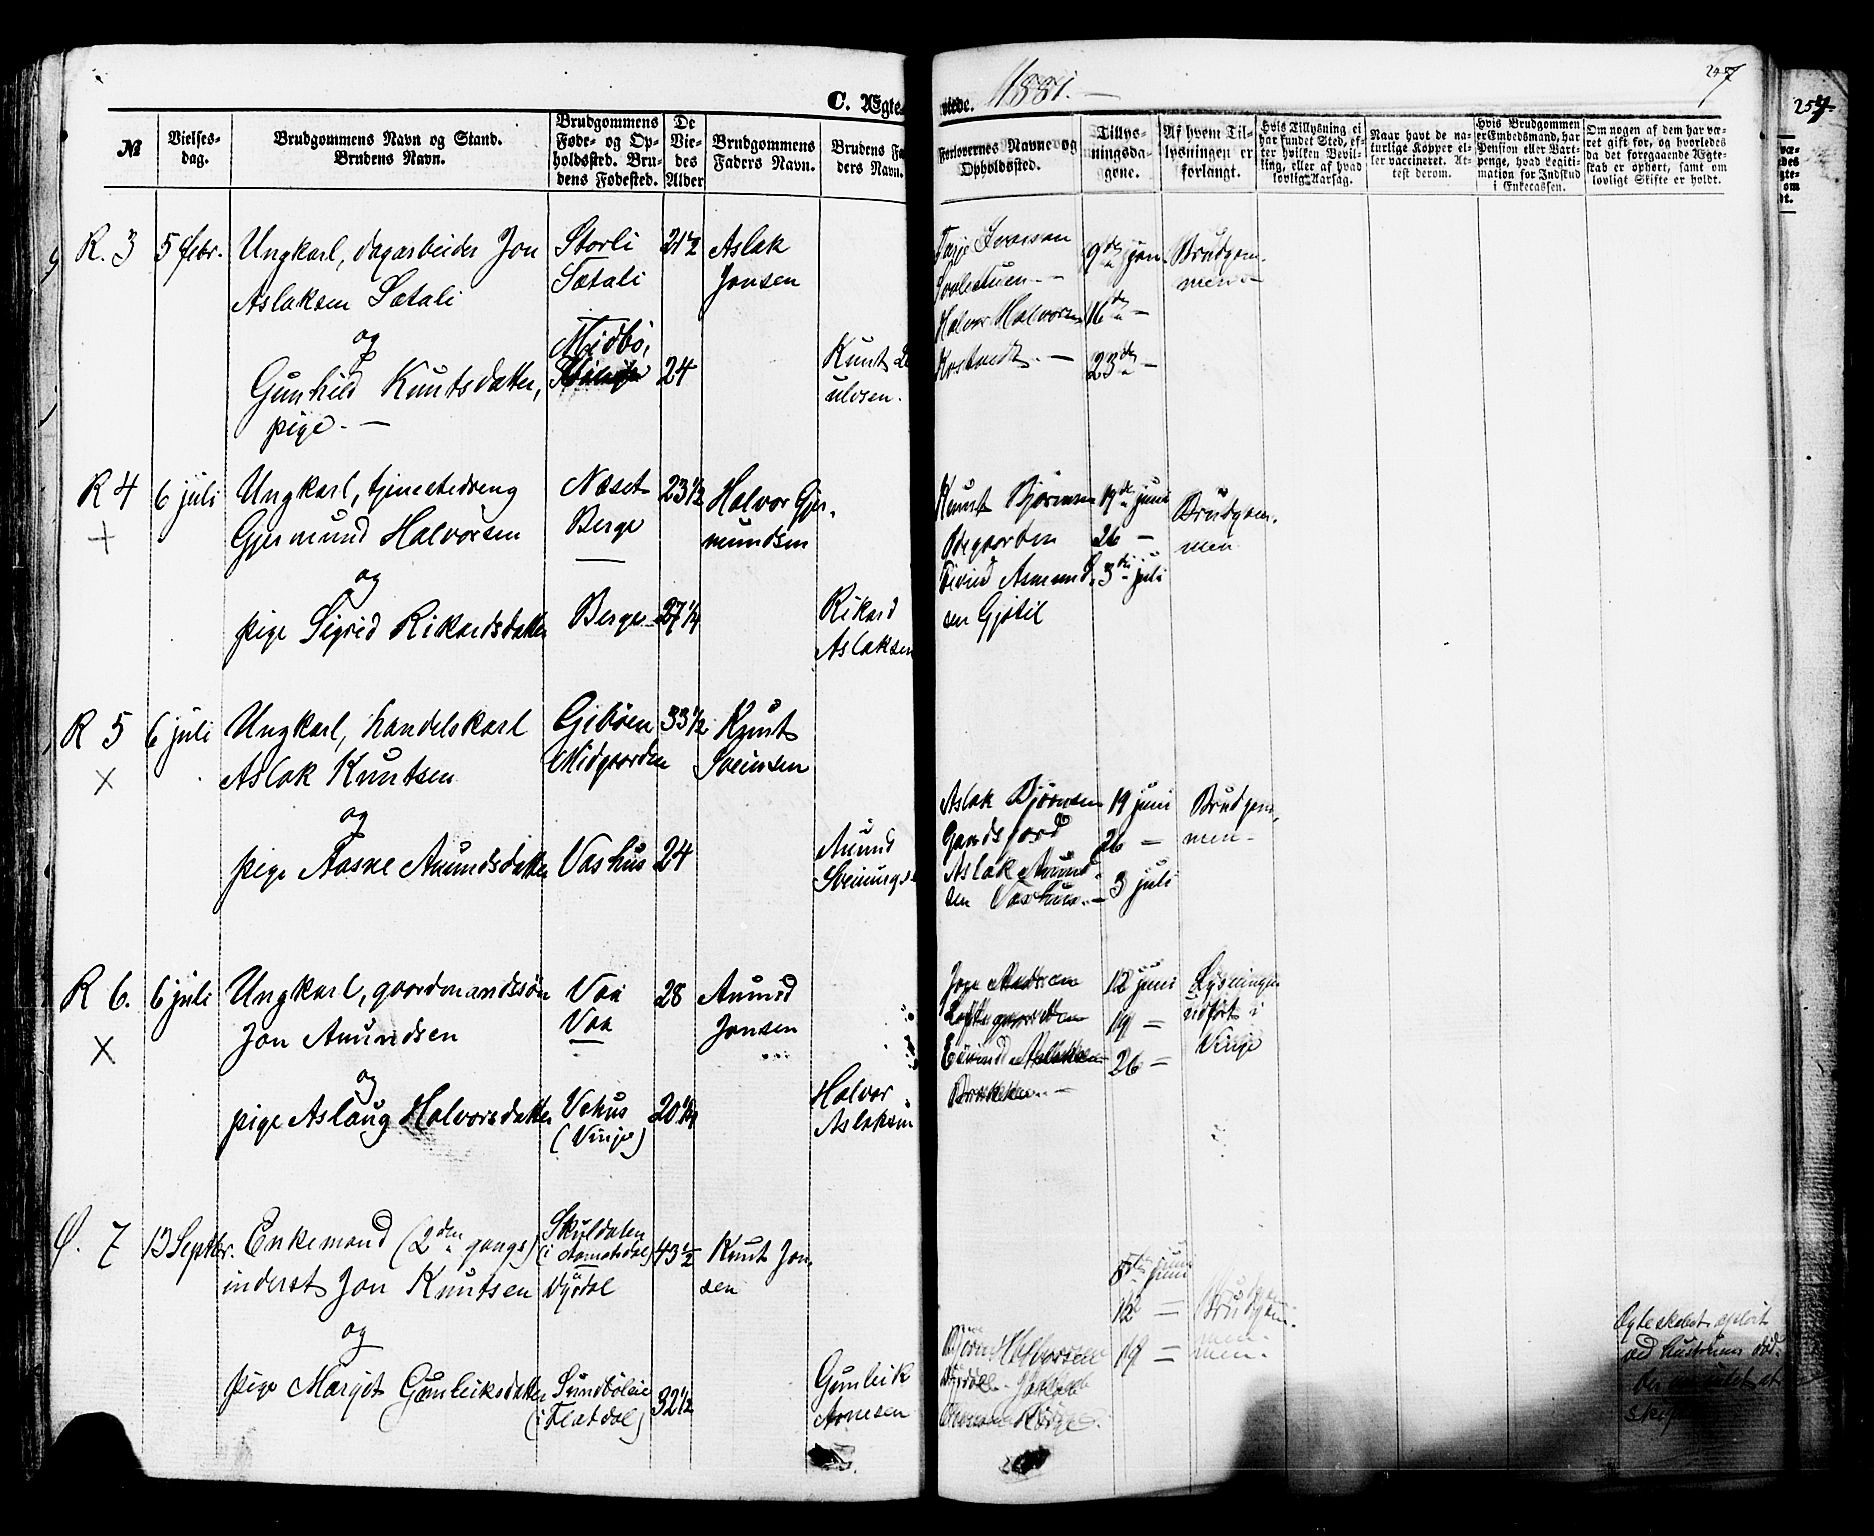 C. Ægte-
viede. 1881. —
257
№
Vielses-
dag.
Brudgommens Navn og Stand.
Brudens Navn.
Brudgommens
Føde- og Op-
holdssted. Bru-
dens Fødested.
De
Vie-
des
Alder
Brudgommens
Faders Navn.
Brudens Fa-
ders Navn.
Forlovernes Navne og
Opholdssted.
Tillys-
ningsda-
gene.
Af hvem Til-
lysningen er
forlangt.
Hvis Tillysning ei
har fundet Sted, ef-
ter hvilken Bevil-
ling, eller af hvad
lovlig Aarsag.
Naar havt de na-
turlige Kopper el-
ler vaccineret. At-
test derom.
Hvis Brudgommen
er Embedsmand, har
Pension eller Vart-
penge, hvad Legiti-
mation for Indskud
i Enkecassen.
Om nogen af dem har væ-
ret gift før, og hvorledes
da det foregaaende Ægte-
skab er ophørt, samt om
lovligt Skifte er holdt.
R. 3
5 febr.
Ungkarl, dagarbeider Jon
Aslaksen Sætali
og
Gunhild Knutsdatter,
pige. —
Storli
Sætali
Midbö,
21½
24
Aslak
Jonsen
Knut
ulvsen.
Halvor Halvorsen
9de jan.
16de —
23de —
Brudgom-
men —
R 4
+
6 juli
Ungkarl, tjenestedreng
Gjermund Halvorsen
og
pige Sigrid Rikardsdatter
Næset
Berge
—
Berge
23½
27¼
Halvor Gjer-
mundsen
Rikard
Aslaksen
Knut Bjørnsen
Ødegaarden
Eivind Asmund-
sen Gjøtil
19de juni
26 —
3die juli
Brudgom-
men
R 5
X
6 juli
Ungkarl, handelskarl
Aslak Knutsen
og
pige Aasne Anundsdatter
Gjibøen
Midgaarden
Vashus
33½
24
Knut
Sveinsen
Anund
Sveinungs
Aslak Bjørnsen
Gandsjord
Aslak Anund-
sen Vashus. —
19 juni
26 —
3 juli
Brudgom-
men —
R 6.
X
6 juli
Ungkarl, gaardmandssøn
Jon Anundsen
og
pige Aslaug Halvorsdatter
Vaa
Vaa
Vehus
(Vinje)
28
20¼
Anund
Jonsen
Halvor
Aslaksen
12 juni
19 —
26 —
Lysningen
udført i
Vinje
Ø. 7
13 Septbr.
Enkemand (2den gang)
inderst Jon Knutsen
og
pige Margit Gunleiksdatter
Skuldalen
(i Aamotsdal)
Dyrdal
Sundbøleie
(i Flatdal)
43½
32½
Knut Jon-
sen
Gunleik
Arnesen
Bjørn Halvorsen
5te juni
12 —
19 —
Brudgom-
men —
Ægteskabet opløst
ved hustruens død.